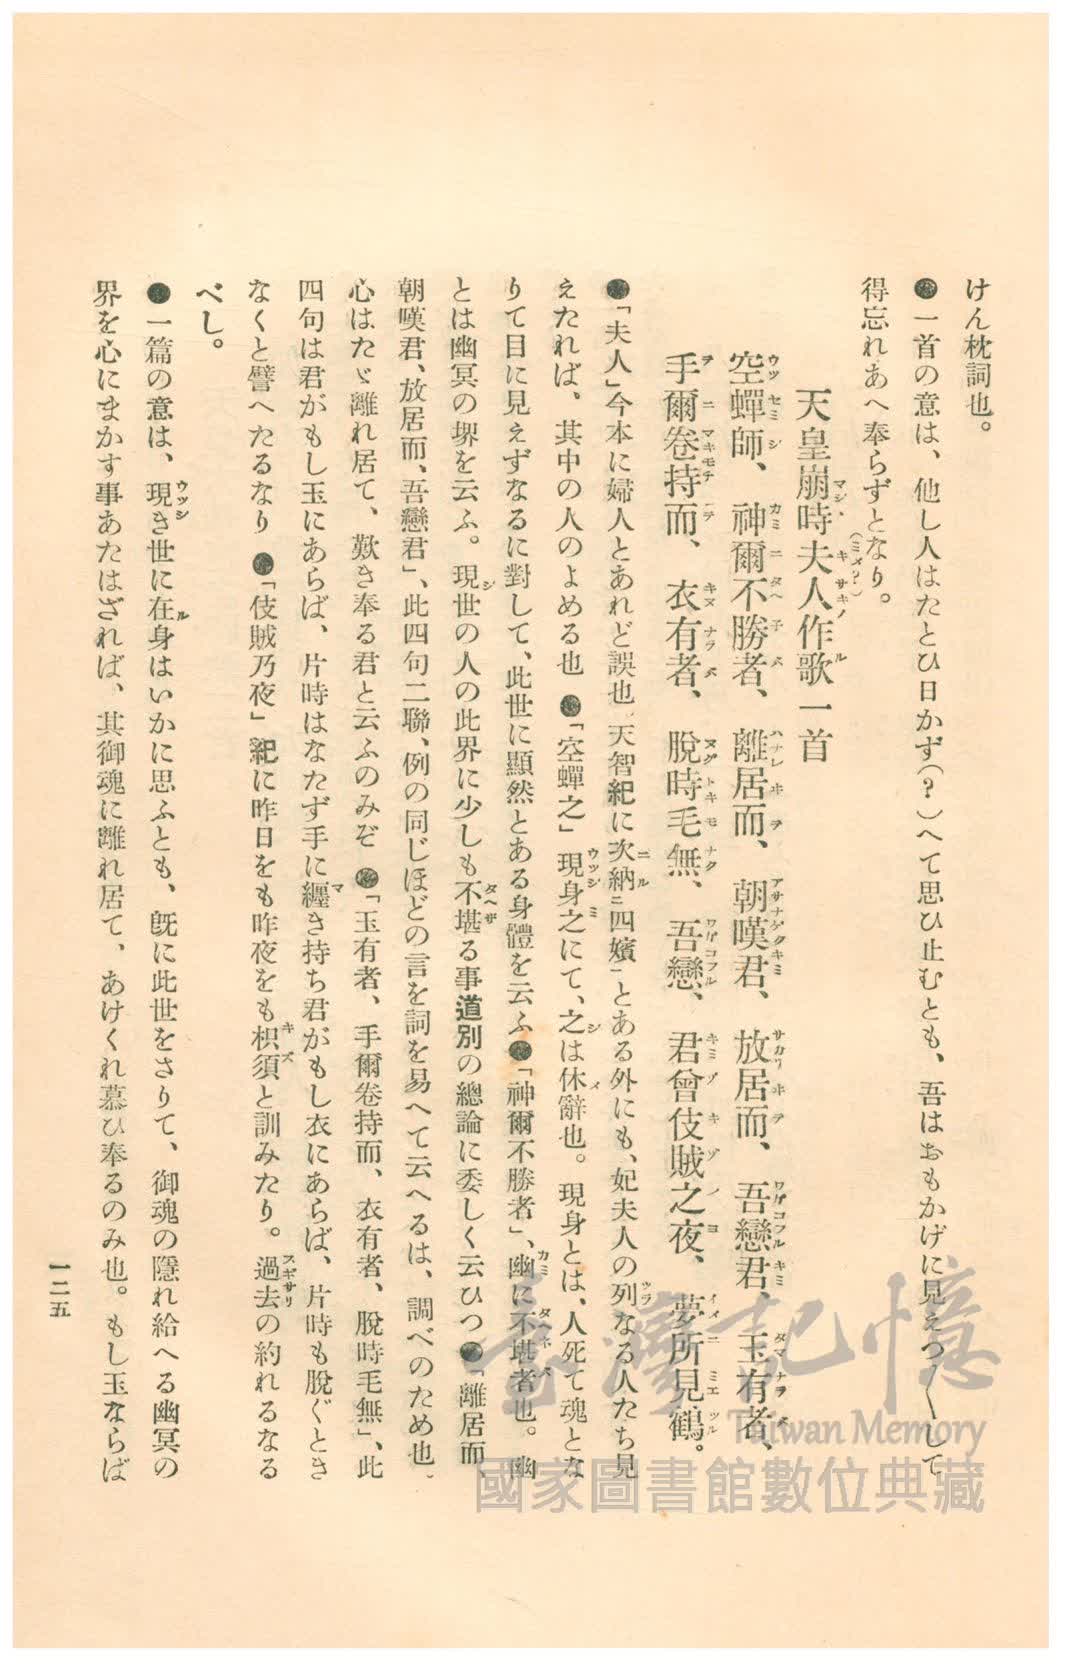 けん枕詞也。
●一首の意は、他し人はたとひ日かず(?)へて思ひ止むとも、吾はおもかげに見えつ〱して
得忘れあへ奉らずとなり。
天皇崩時夫人作歌一首
空蟬師、神爾不勝者、離居而、朝嘆君、放居而、吾戀君、玉有者、
手爾卷持而、衣有者、脫時毛無、吾戀、君曾伎賊之夜、夢所見鶴。
●「夫人」今本に婦人とあれど誤也 天智紀に次納ニ四嬪一とある外にも、妃夫人の列なる人たち見
えたれば、其中の人のよめる也 ●「空蟬之」現身之にて、之は休辭也。現身とは、人死て魂とな
りて目に見えずなるに對して、此世に顯然とある身體を云ふ●「神爾不勝者」、幽に不堪者也。幽
とは幽冥の堺を云ふ。現世の人の此界に少しも不堪る事道別の總論に委しく云ひつ●「離居而、
朝嘆君、放居而、吾戀君」、此四句二聯、例の同じほどの言を詞を易へて云へるは、調べのため也、
心はたゞ離れ居て、歎き奉る君と云ふのみぞ ●「玉有者、手爾卷持而、衣有者、脫時毛無」、此
四句は君がもし玉にあらば、片時はなたず手に纒き持ち君がもし衣にあらば、片時も脫ぐとき
なくと譬へたるなり ●「伎賊乃夜」紀に昨日をも昨夜をも枳須と訓みたり。過去の約れるなる
べし。
●一篇の意は、現き世に在身はいかに思ふとも、旣に此世をさりて、御魂の隱れ給へる幽冥の
界を心にまかす事あたはざれば、其御魂に離れ居て、あけくれ慕ひ奉るのみ也。もし玉ならば
一二五
臺灣記憶
Taiwan Memory
國家圖書館數位典藏